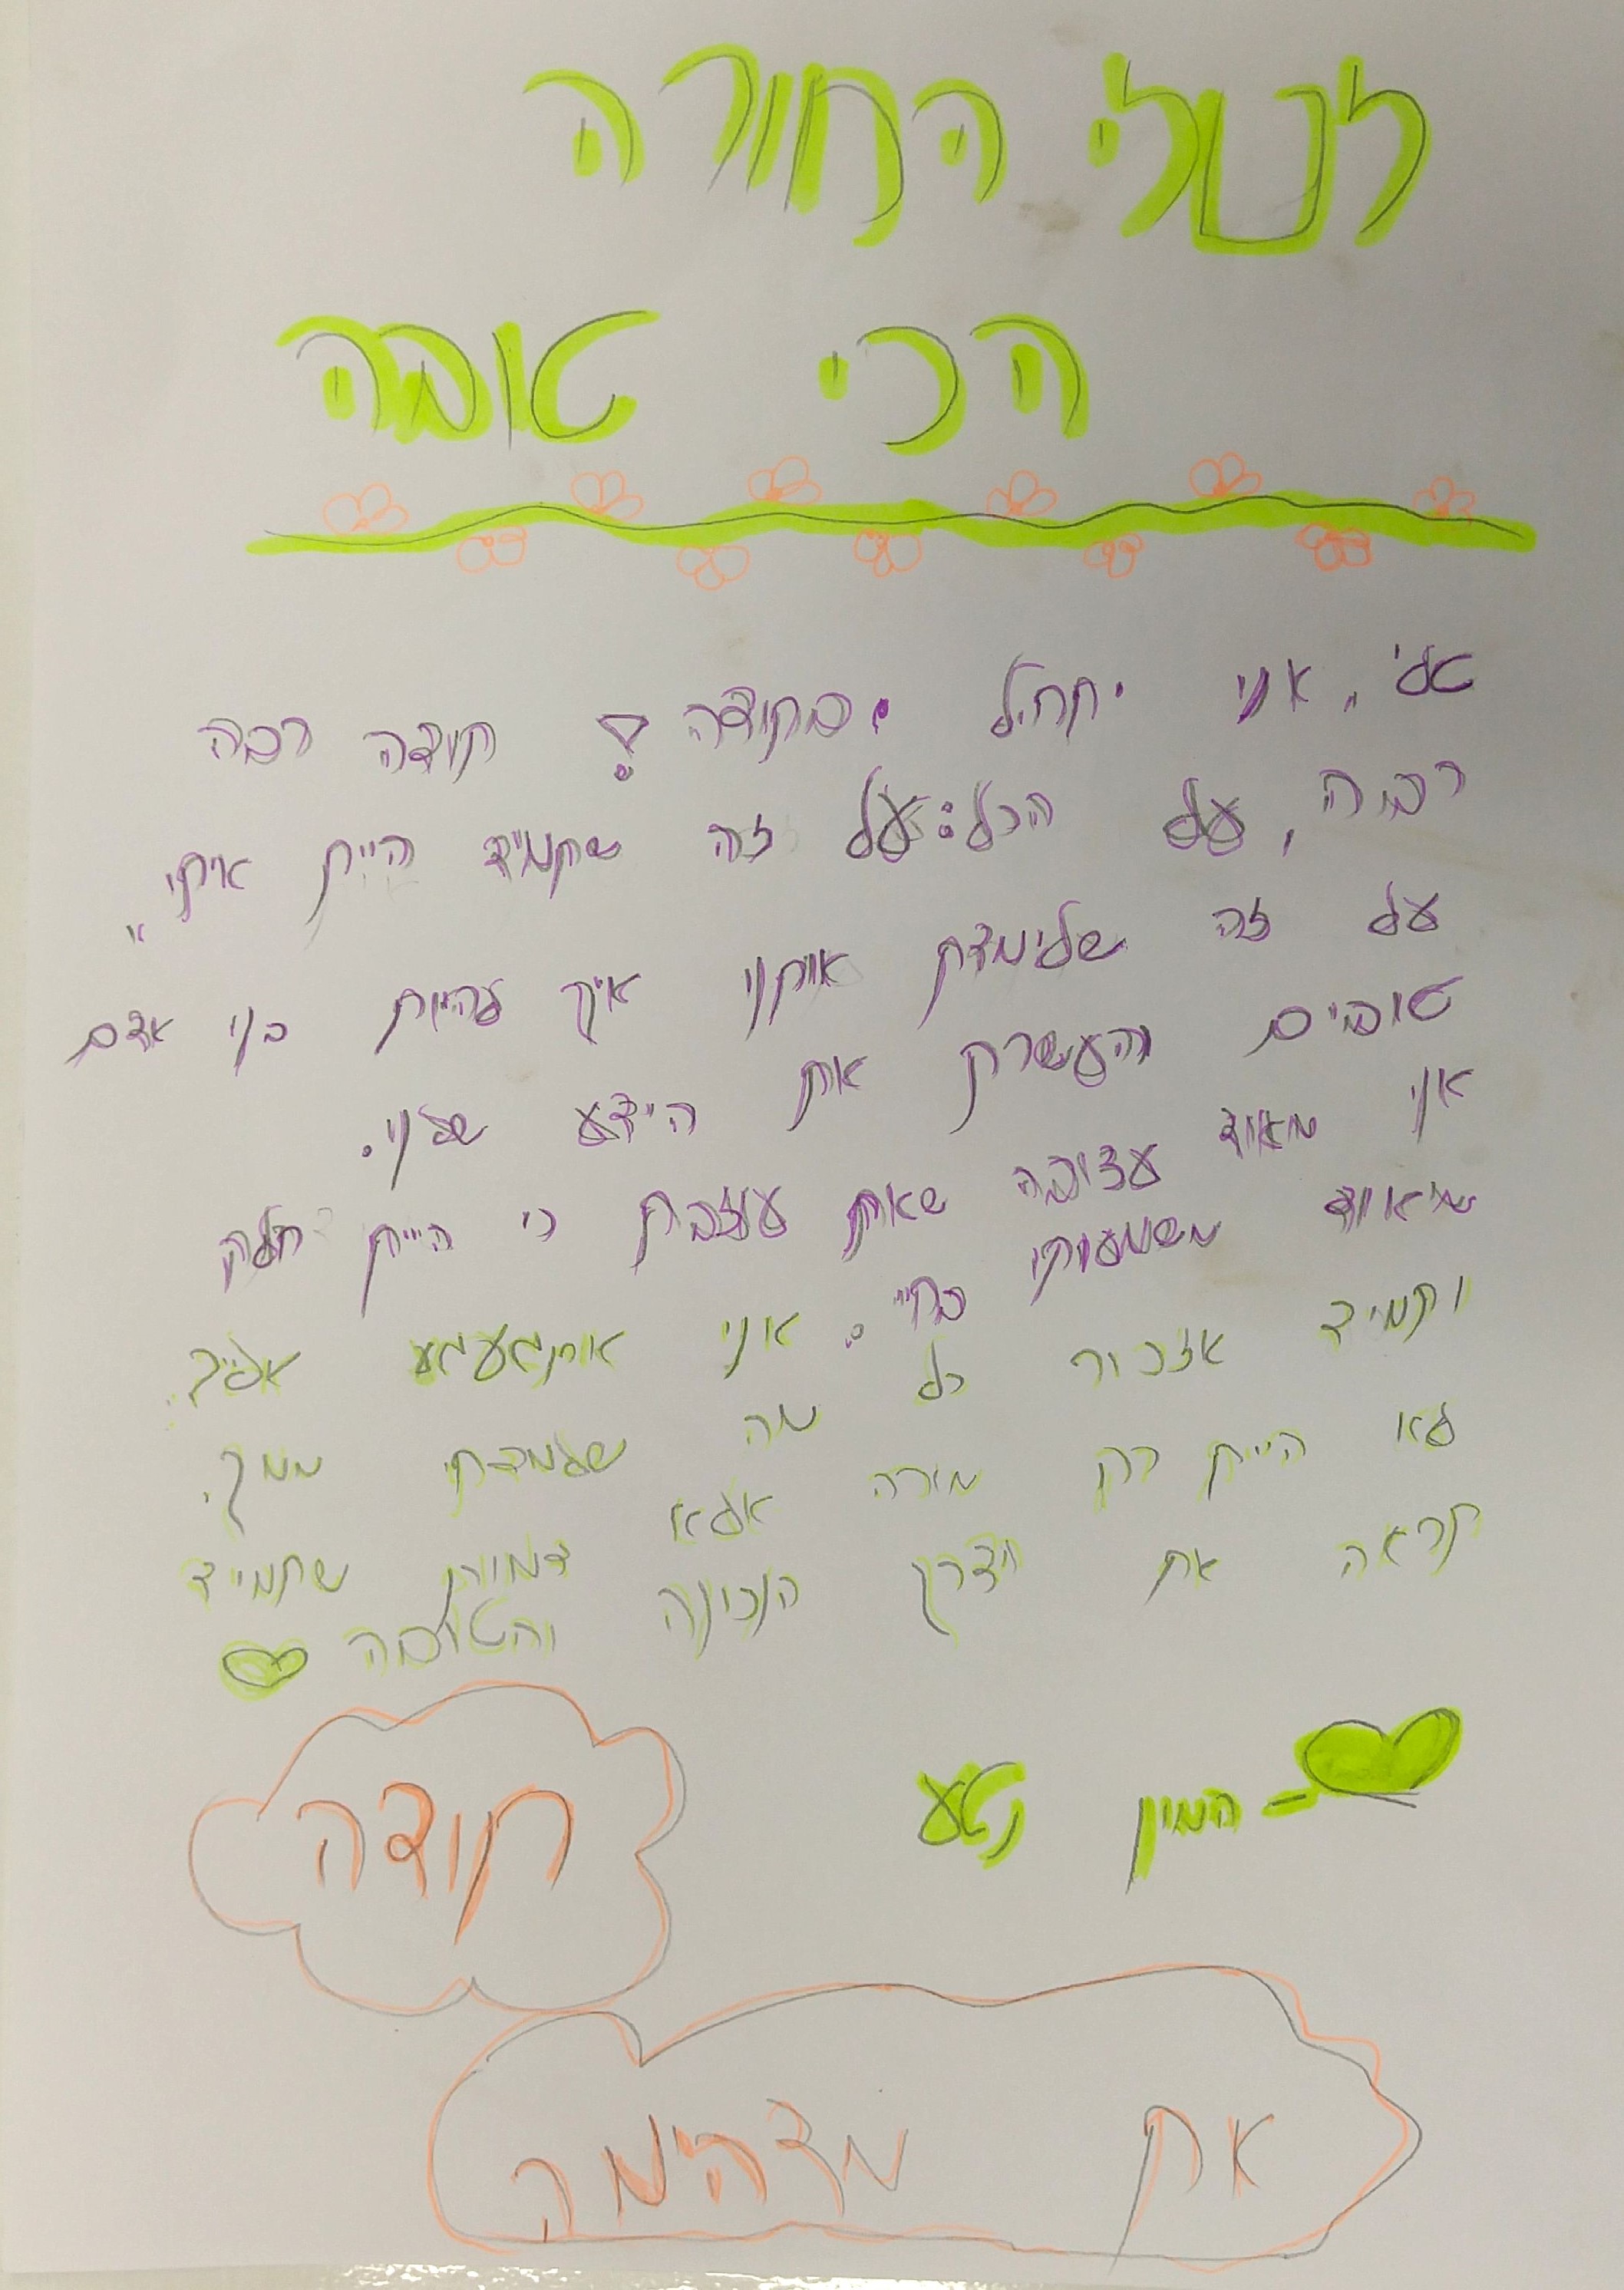 לטלי המורה
הכי טובה
טלי, אני יתחיל בתודה! תודה רבה
רבה, על הכל: על זה שתמיד היית איתי,
על זה שלימדת אותנו איך להיות בני אדם
טובים והעשרת את הידע שלנו.
אני מאוד עצובה שאת עוזבת כי היית חלק
מאוד משמעותי בחיי. אני אתגעגע אלייך
ותמיד אזכור כל מה שלמדתי ממך.
לא היית רק מורה אלא דמות שתמיד
תראה את הדרך הנכונה והטובה
המון נטע
תודה
את מדהימה